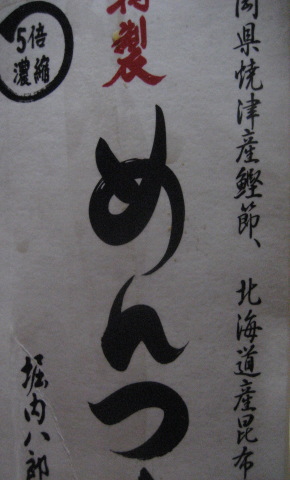 岡県焼津産鰹節、北海道産昆布
製
めんつ
5倍
濃縮
堀内八郎